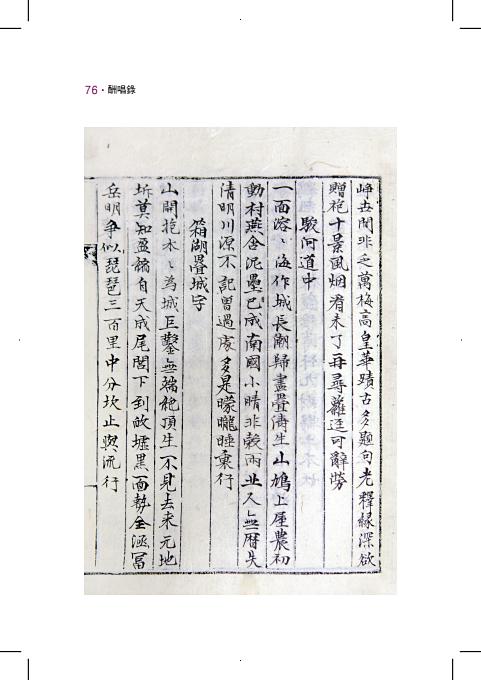 76 · 酬唱錄
崢世間非乏萬梅高皇華蹟古多題向老釋緣深欲
贈袍十景風烟看未了再尋蘿逕可辭勞
駿河道中
一面溶〻海作城長潮歸盡疊濤生山鳩上屋農初
動村燕含泥壘已成南國小晴非穀雨北人無曆失
清明川源不記曾過處多是矇矓睡裏行
箱湖疊城字
山開抱水〻為城巨鑿無端絶頂生不見去來元地
坼莫知盈縮自天成尾閭下到敵墟黑面勢全涵冨
岳明爭似琵琶三百里中分坎止與流行